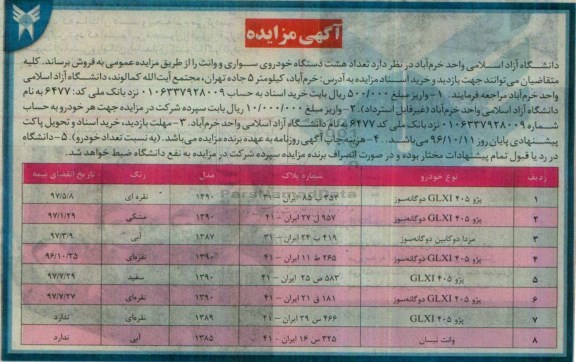 آگهی مزایده
دانشگاه آزاد اسلامی واحد خرم‌آباد در نظر دارد تعداد هشت دستگاه خودروی سواری و وانت را از طریق مزایده عمومی به فروش برساند. کلیه
متقاضیان می‌توانند جهت بازدید و خرید اسناد مزایده به آدرس: خرم‌آباد، کیلومتر ۵ جاده تهران، مجتمع آیت‌الله کمالوند، دانشگاه آزاد اسلامی
واحد خرم‌آباد مراجعه فرمایند. ۱- واریز مبلغ ۵۰۰/۰۰۰ ریال بابت خرید اسناد به حساب ۰۱۰۶۳۳۷۹۲۸۰۰۹ نزد بانک ملی کد: ۶۴۷۷ به نام
دانشگاه آزاد اسلامی واحد خرم‌آباد (غیرقابل استرداد). ۲- واریز مبلغ ۱۰/۰۰۰/۰۰۰ ریال بابت سپرده شرکت در مزایده جهت هر خودرو به حساب
شماره ۰۱۰۶۳۳۷۹۲۸۰۰۹ نزد بانک ملی کد ۶۴۷۷ به نام دانشگاه آزاد اسلامی واحد خرم‌آباد. ۳- مهلت بازدید، خرید اسناد و تحویل پاکت
پیشنهادی پایان روز ۹۶/۱۰/۱۱ می‌باشد. ۴- هزینه چاپ آگهی روزنامه به عهده برنده مزایده می‌باشد. (به نسبت تعداد خودرو). ۵- دانشگاه
در رد یا قبول تمام پیشنهادات مختار بوده و در صورت انصراف برنده مزایده سپرده شرکت در مزایده به نفع دانشگاه ضبط خواهد شد.
ردیف نوع خودرو شماره پلاک مدل رنگ تاریخ انقضای بیمه
۱ پژو ۴۰۵ GLXI دوگانه‌سوز ۸۵ ایران ۱۳۹۰ نقره ای ۹۷/۵/۸
۲ پژو ۴۰۵ GLXI دوگانه‌سوز ۹۵۷ ل ۲۷ ایران - ۴۱ ۱۳۹۰ مشکی ۹۷/۱/۲۹
۳ مزدا دوکابین دوگانه‌سوز ۴۱۹ ب ۲۴ ایران - ۳۱ ۱۳۸۷ آبی ۹۷/۳/۹
۴ پژو ۴۰۵ GLXI دوگانه‌سوز ۲۶۵ ط ۱۱ ایران - ۴۱ ۱۳۹۰ نقره‌ای ۹۶/۱۰/۲۵
۵ پژو ۴۰۵ GLXI ۵۸۳ ص ۲۵ ایران - ۴۱ ۱۳۹۰ سفید ۹۷/۷/۲۹
۶ پژو ۴۰۵ GLXI دوگانه‌سوز ۱۸۱ ق ۲۱ ایران - ۴۱ ۱۳۹۰ نقره‌ای ۹۷/۷/۲۷
۷ پژو ۴۰۵ GLXI ۴۶۶ س ۳۹ ایران - ۴۱ ۱۳۸۹ نقره‌ای ندارد
۸ وانت نیسان ۳۲۵ س ۱۶ ایران - ۴۱ ۱۳۸۵ آبی ندارد
ParsNamadData